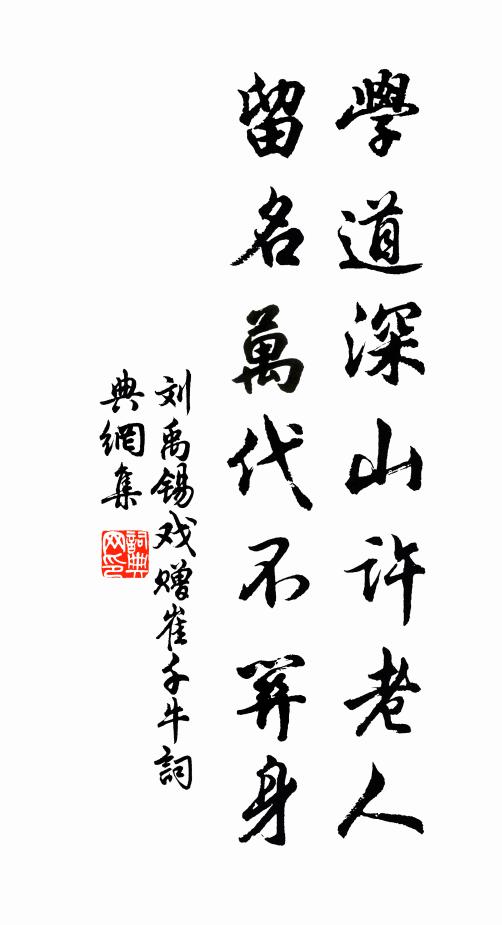 學道深山許老人
留名萬代不關身
刘禹锡戏赠崔千牛詞
典網集
詞典
网印